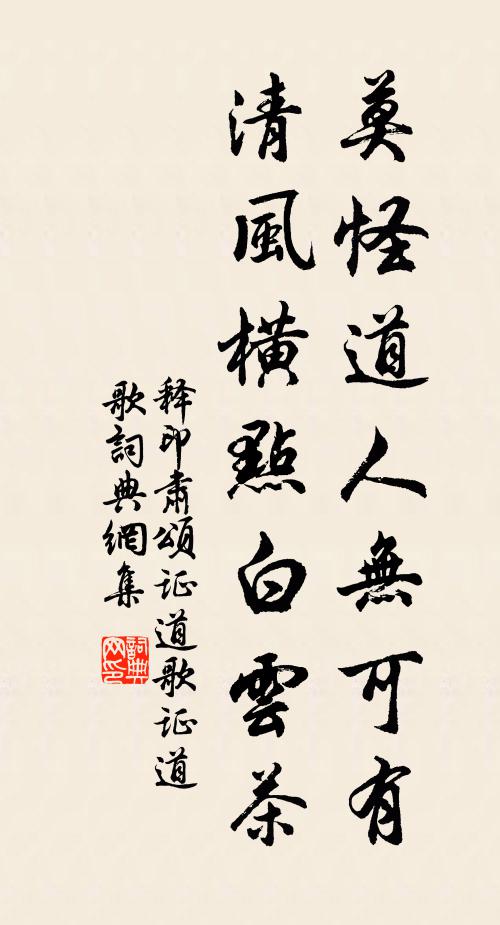 莫怪道人無可有
清風橫點白雲茶
释印肃頌证道歌证道
歌詞典網集
詞典
网印